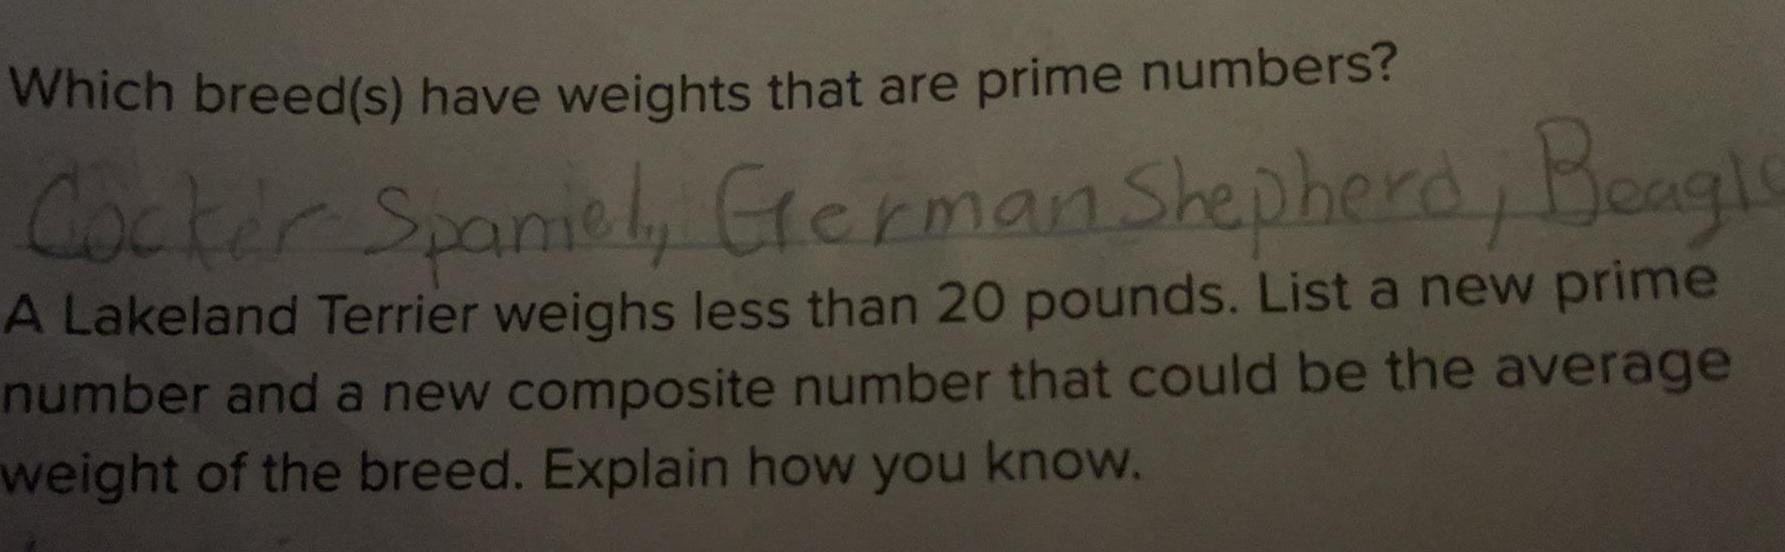 Which breed(s) have weights that are prime numbers?
Cocker Spaniel, German Shepherd, Beagle
A Lakeland Terrier weighs less than 20 pounds. List a new prime
number and a new composite number that could be the average
weight of the breed. Explain how you know.